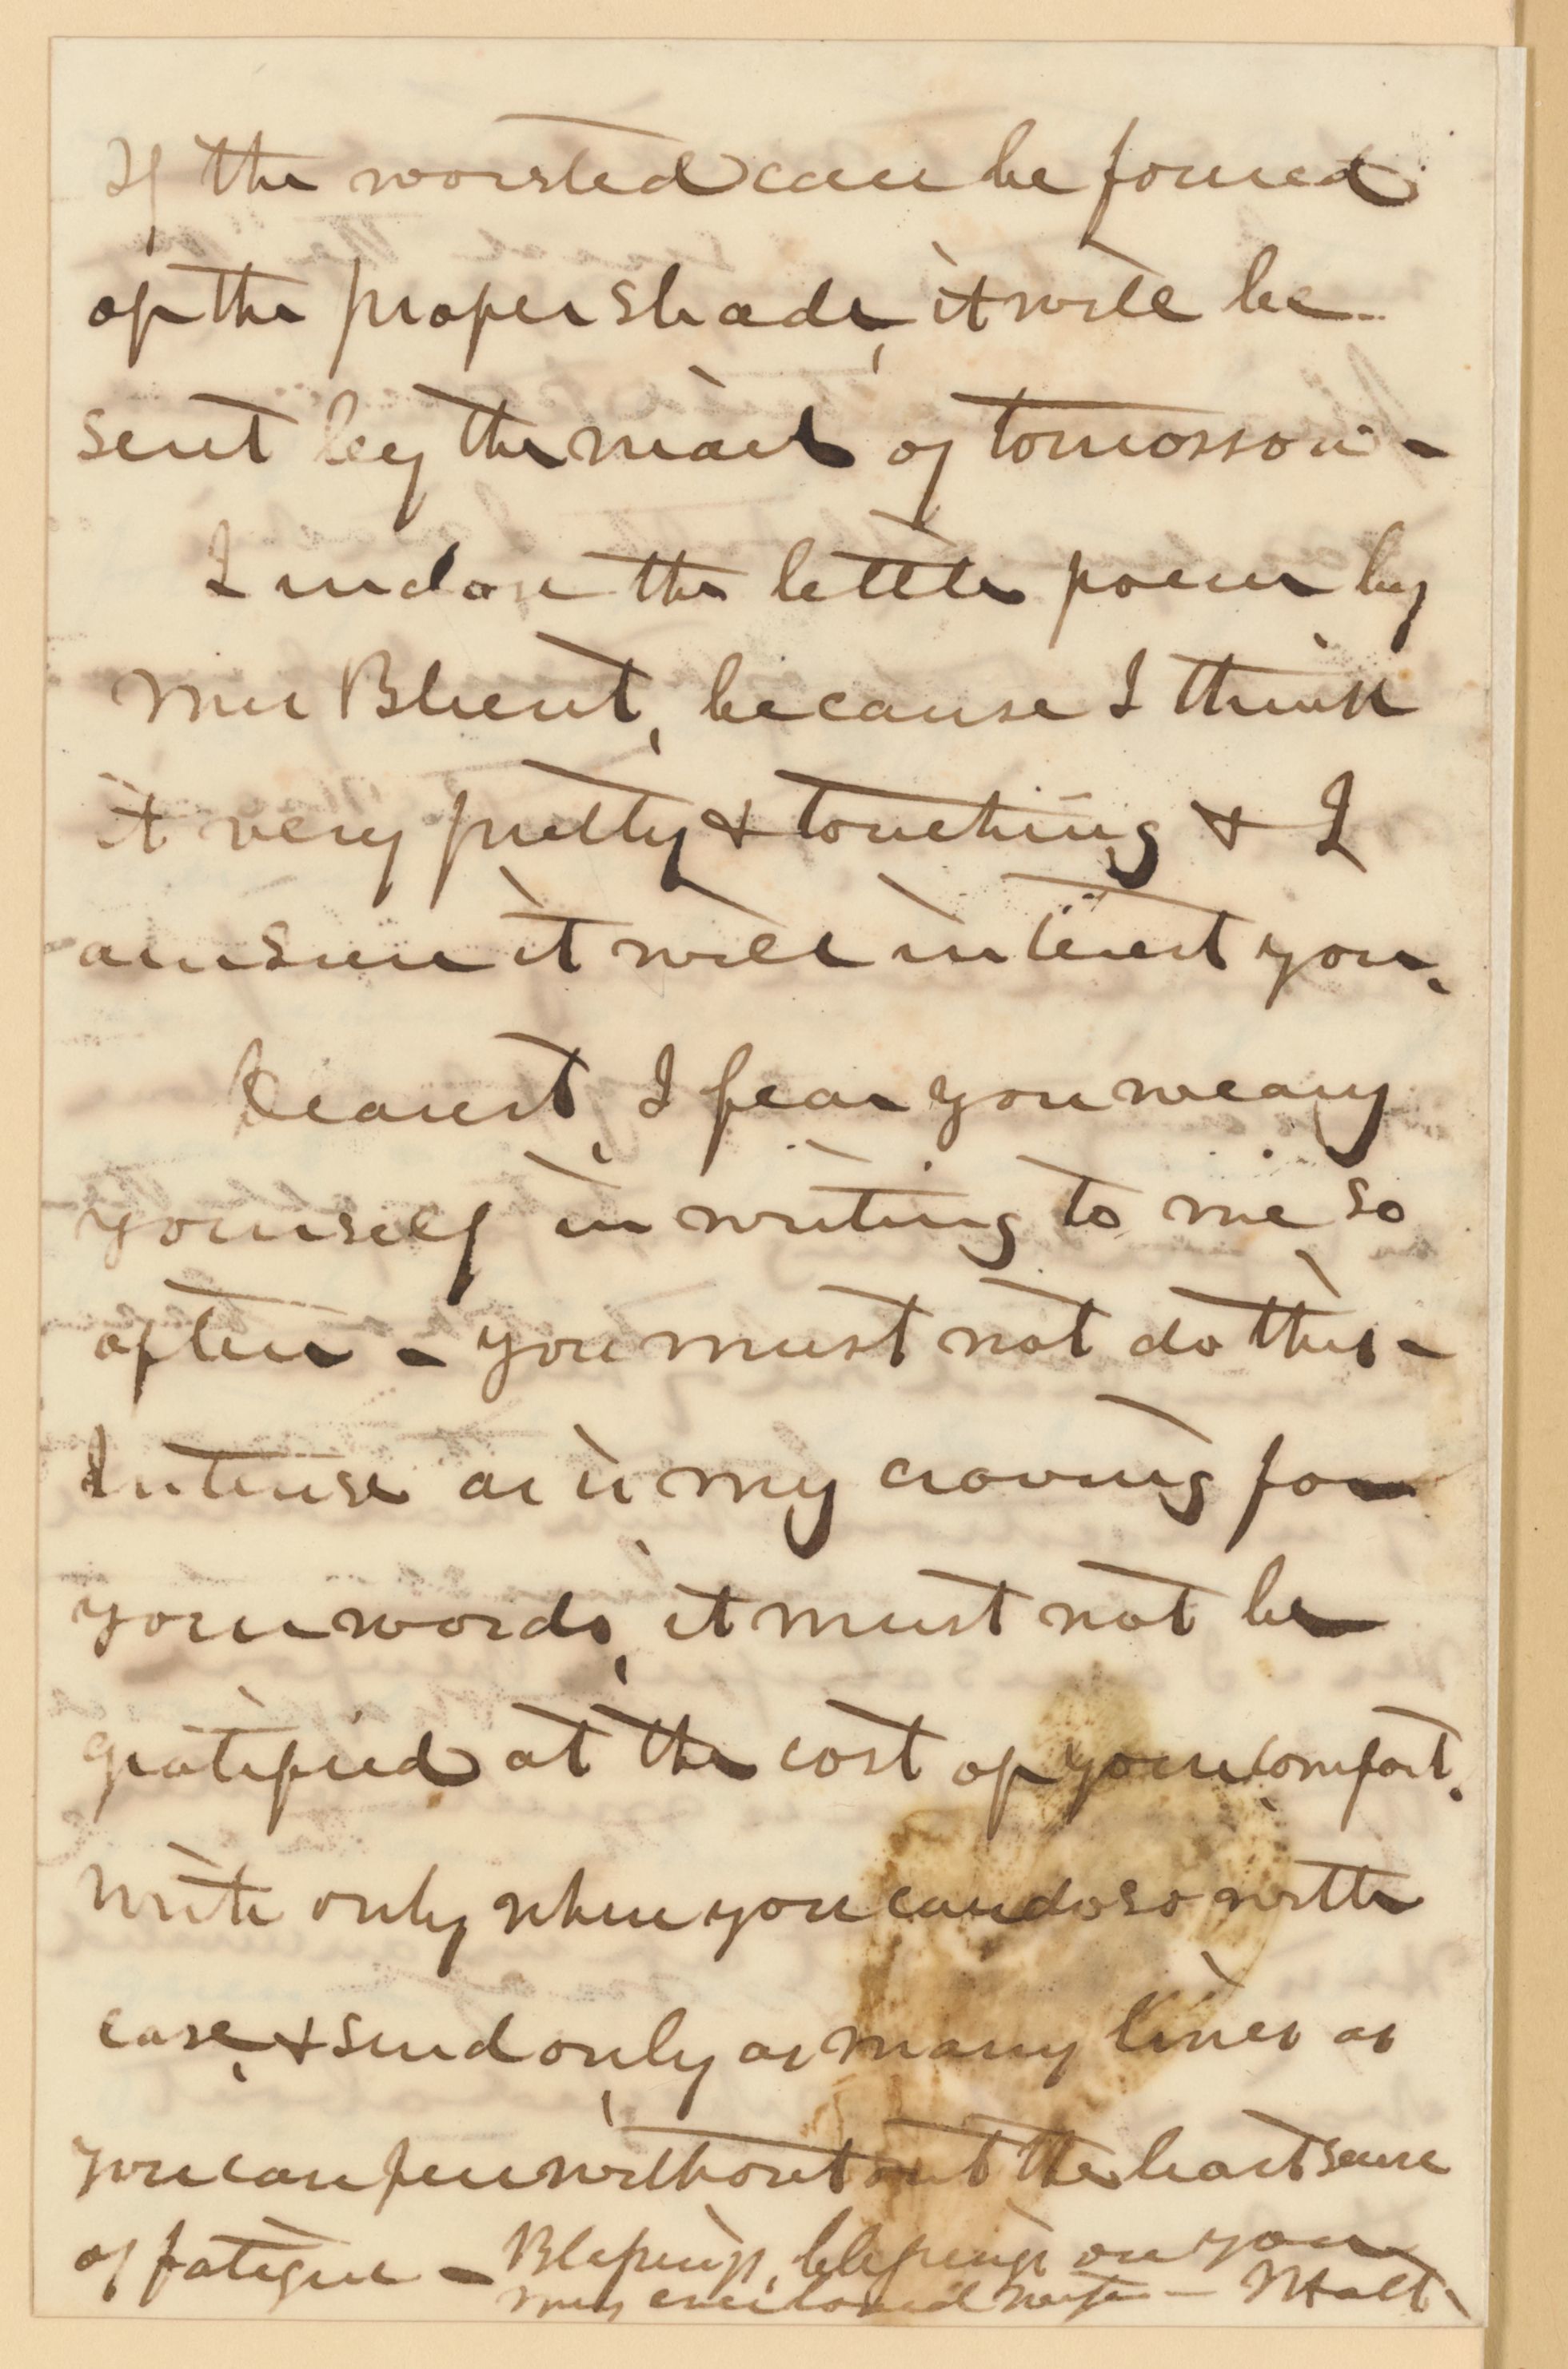 If the worsted can be found
of the proper shade, it will be
sent by the mail of tomorrow -
I enclose the little poem by
Miss Blunt, because I think
it very pretty & touching & I
am sure it will interest you.
Dearest, I fear you weary
yourself in writing to me so
often - you must not do this -
Intense as is my craving for
your words, it must not be
gratified at the cost of your comfort.
Write only when you can do so with
ease, & send only as many lines as
you can pen without the least sense
of fatigue - Blessings, blessings on you
my wife - Matt